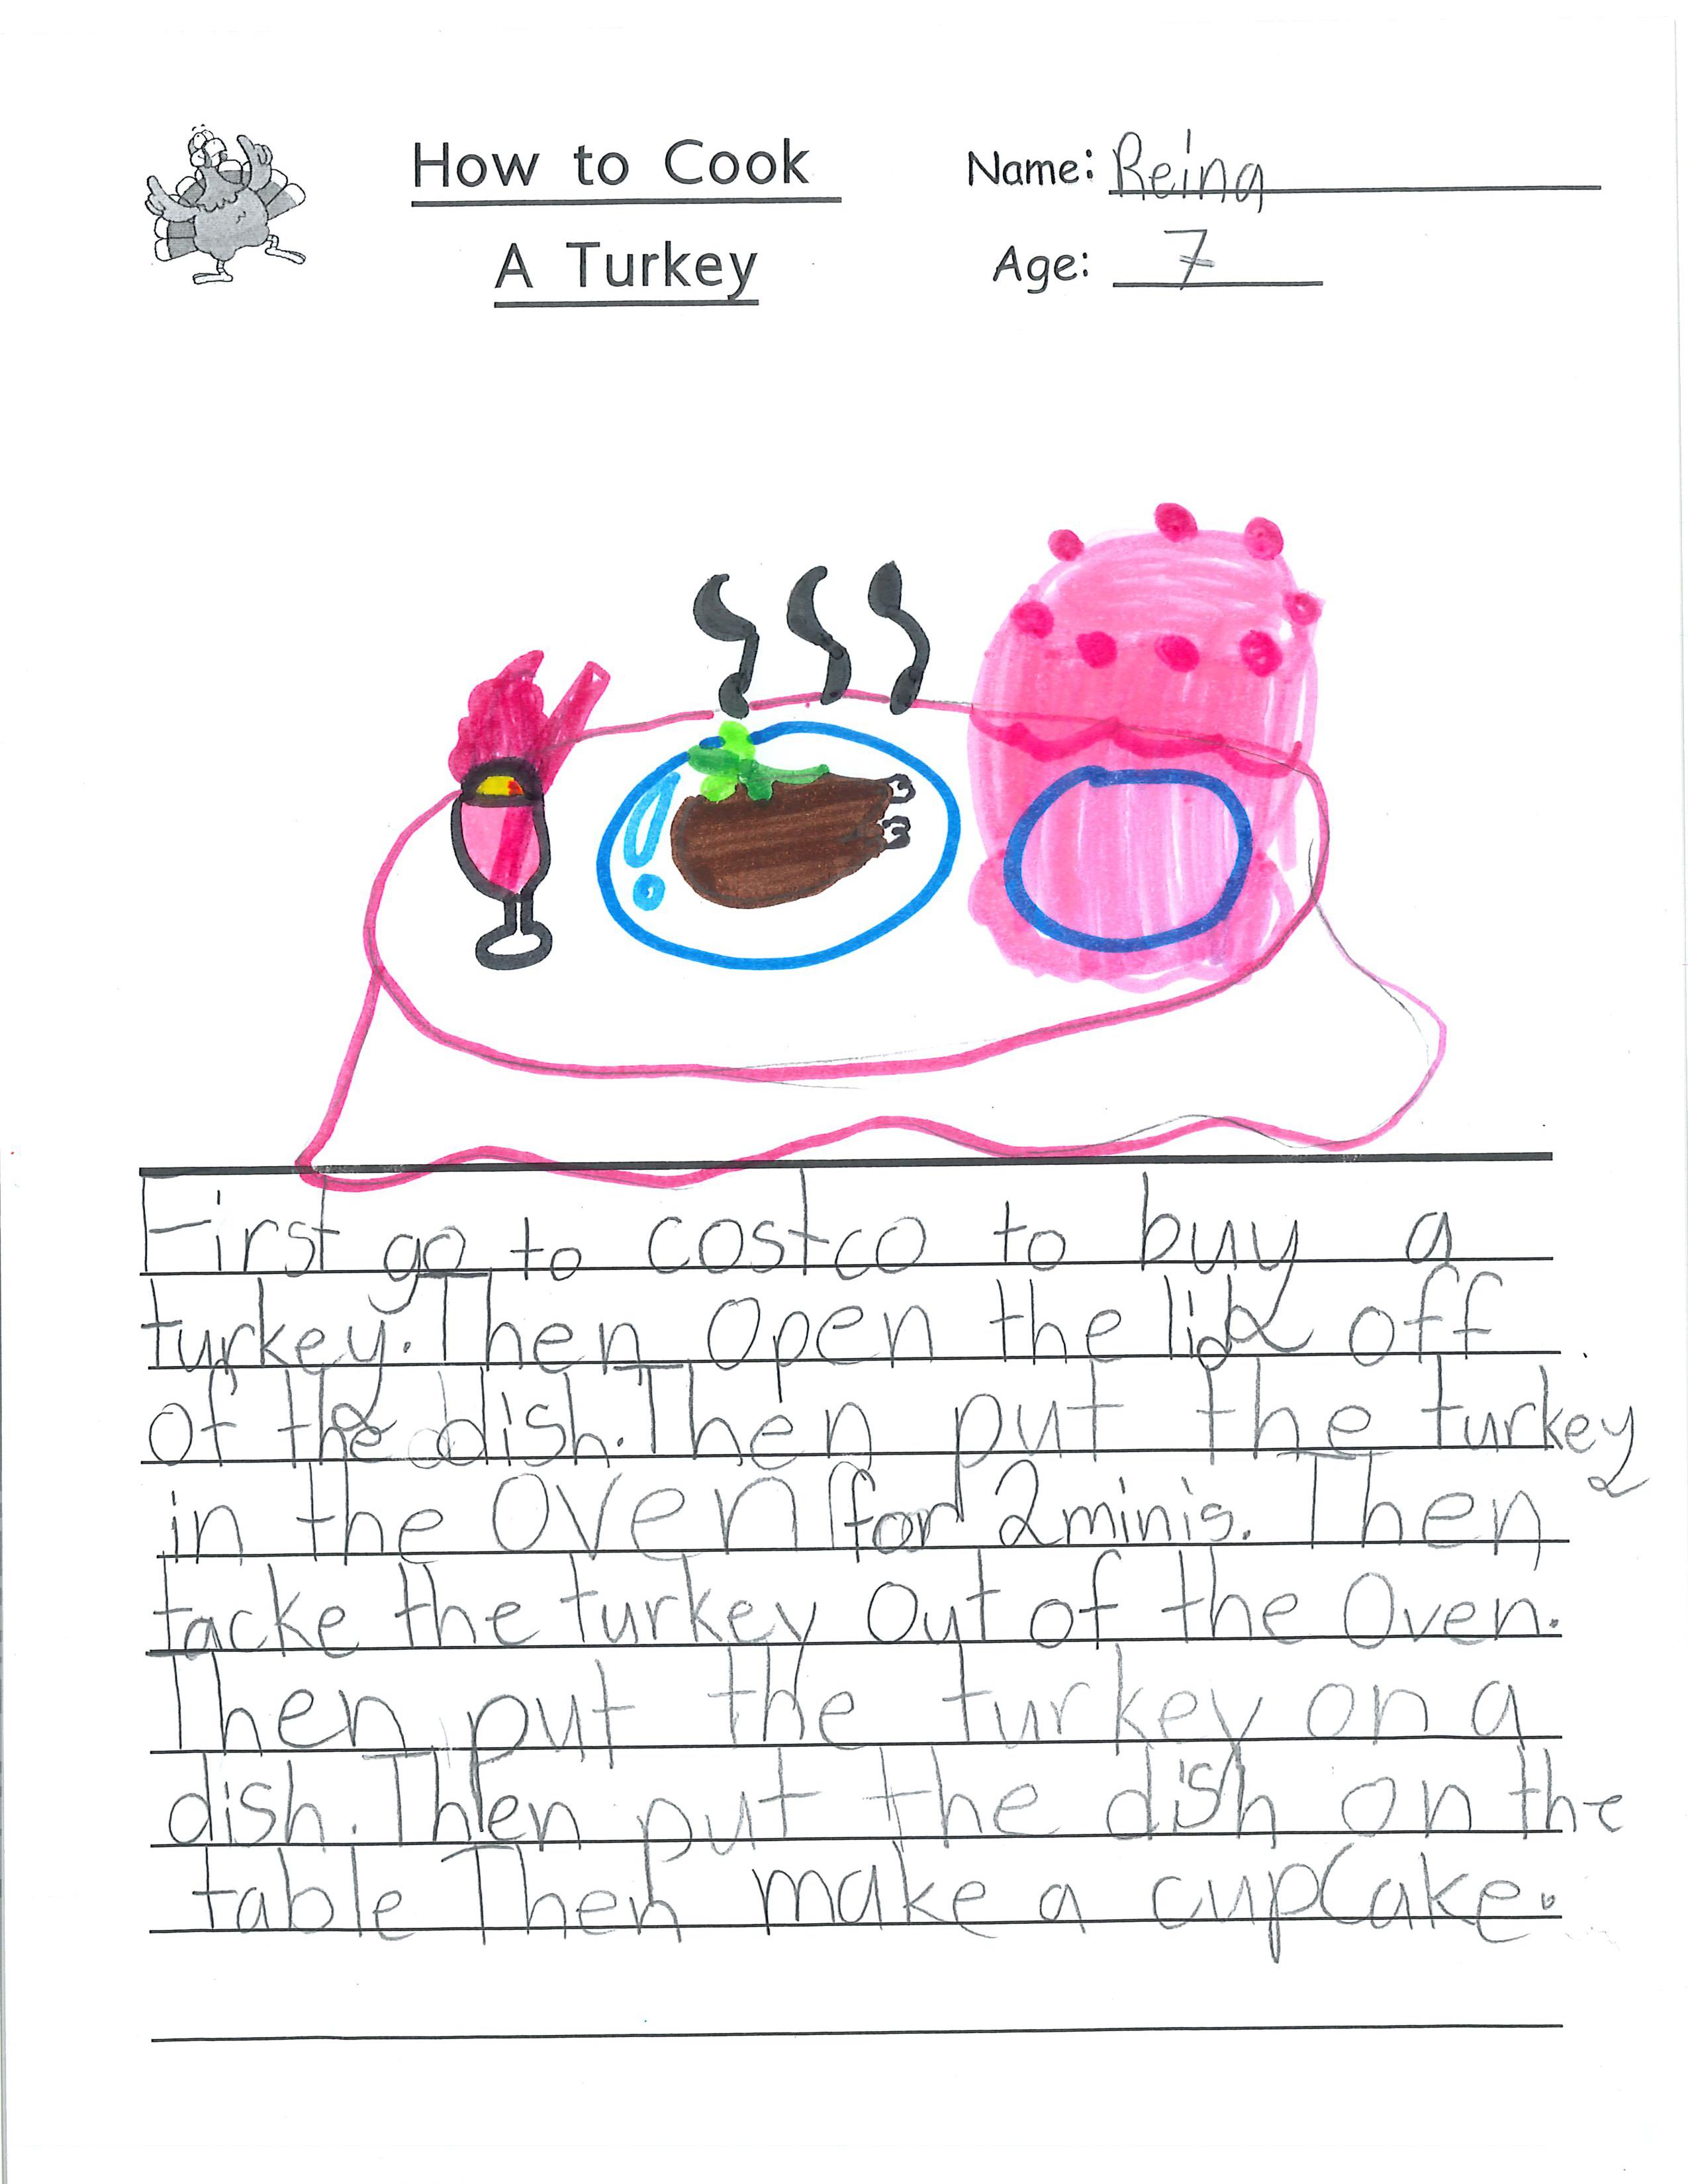 How to Cook
A Turkey
Name: Reina
Age: 7
First go to costco to buy a
turkey. Then open the lid off
of the dish. Then put the turkey
in the oven for 2 minis. Then
tacke the turkey out of the oven.
Then put the turkey on a
dish. Then put the dish on the
table Then make a cupcake.